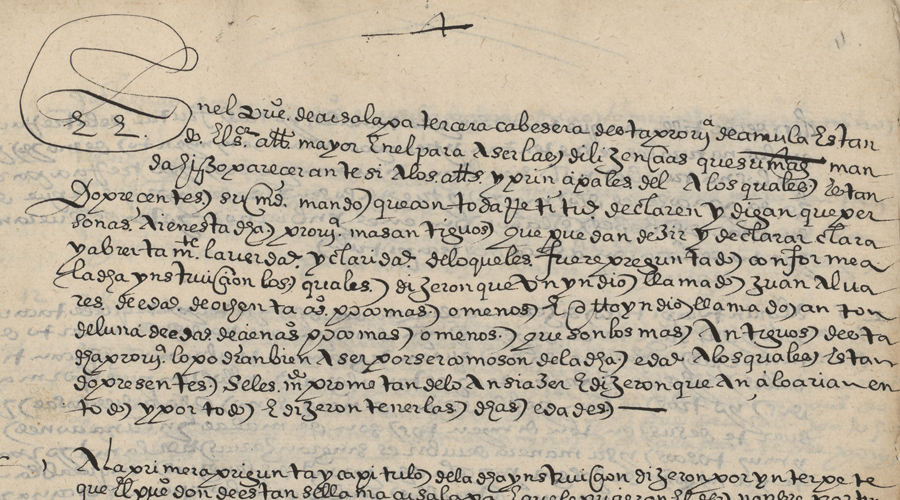 En el pu.º de aisalapa tercera cabesera desta prouj.ª de amula Estan
do El s.r all.de mayor En el para Aserlas dilizençias que se man
da hiso parecer ante si Alos all.des y prinçipales del Alos quales Estan
Do precentes su md. mando que con toda retitud declaren y digan que per
sonas Ai en esta dha prouj.ª mas antiguos que puedan dezir y declarar clara
y abierta m.te la uerdad y claridad de lo que les fuere preguntado conforme a
la dha ynstruiçion los quales dizeron que Vn yndio llamado Juan Alua
res de edad de ochenta as. poco mas o menos E otro yndio llamado anton
de luna de edad de çien as. poco mas o menos que son los mas Antiguos desta
dha prouj.ª lo podran bien Aser por ser como son de la dha edad Alos quales Estan
do presentes Seles prometan delo Ansi azer E dizeron que Ançi lo arian en
todo y por todo E dizeron tener las dhas edades
Ala primera pregunta y capitulo de la dha ynstruiçion dizeron por ynterpete
que El pu.º donde estan se llama aisalapa